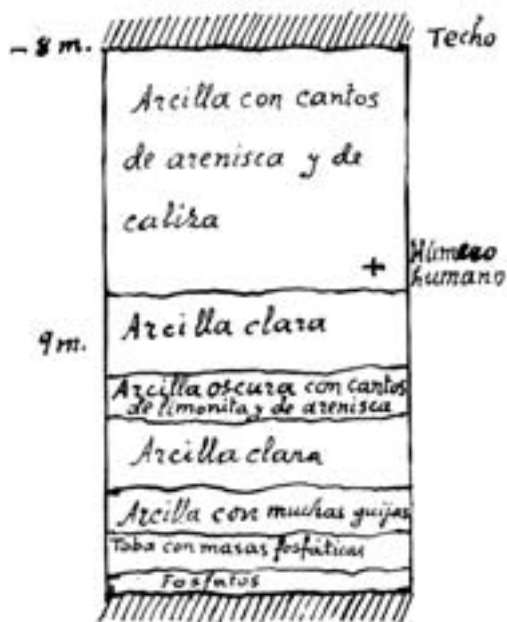 - 8 m.
Techo
Arcilla con cantos
de arenisca y de
caliza
Húmero
humano
9 m.
Arcilla clara
Arcilla oscura con cantos
de limonita y de arenisca
Arcilla clara
Arcilla con muchas guijas
Toba con masas fosfáticas
Fosfatos